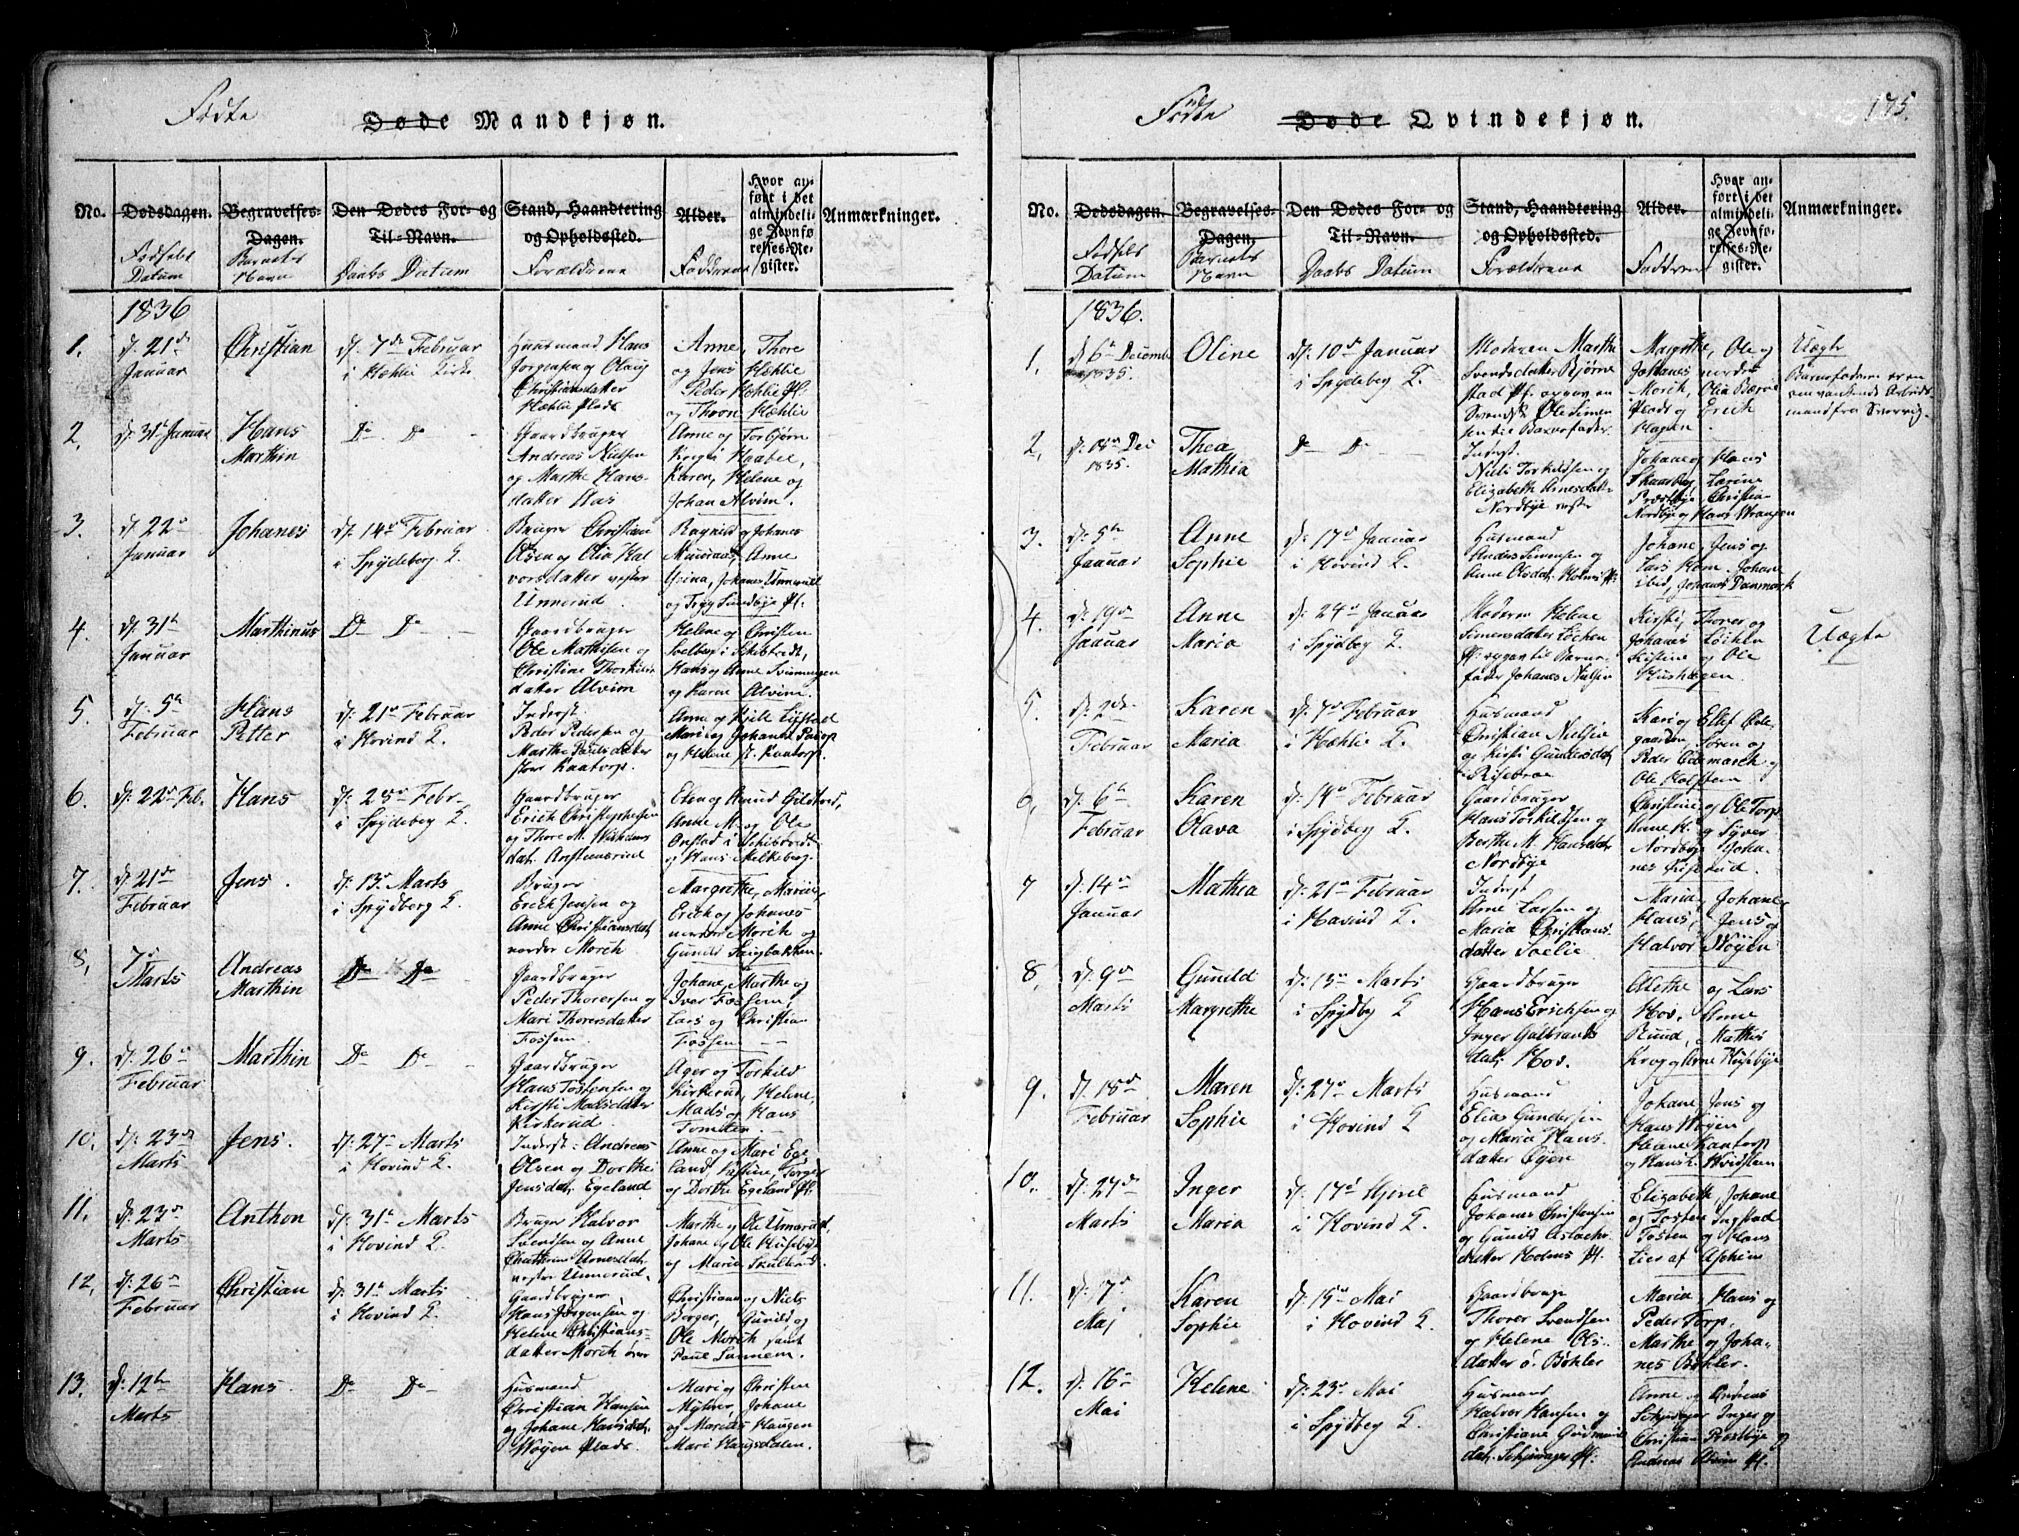 Fødte
Døde Mandkjøn.
No.
Dødsdagen.
Fødsels
Datum
Begravelses-
Dagen.
Barnets
Navn
Den Dødes For- og
Til-Navn.
Daabs Datum
Stand, Haandtering
og Opholdssted.
Forældrene
Alder.
Fadderne
Hvor an-
ført i det
almindeli-
ge Jevnfø-
relses-Re-
gister.
Anmærkninger.
1836
1.
d: 21de
Januar
Christian
d: 7de Februar
i Hæhlie Kirke
Huusmand Hans
Jørgensen og Olaug
Christiansdatter
Hæhlie Plads
Anne, Thore
og Jens Hæhlie
Peder Hæhlie Pl:
og Thron Hæhlie
2,
d: 31te Januar
Hans
Marthin
Do Do
Gaardbruger
Andreas Nielsen
og Marthe Hans-
datter Aas
Anne og Torbjørn
Haabel,
Karen, Helene og
Johan Alvim.
3.
d: 22de
Januar
Johanes
d: 14de Februar
i Spydeberg K.
Bruger Christian
Olsen og Olia Hal
vorsdatter vestre
Unnerud.
Ragnild og Johanes
Anne
Johanes Unnerud
og Trygg Lundbye Pl:
4.
d: 31te
Januar
Marthinus
Do Do
Gaardbruger
Ole Mathisen og
Christine Thorkilds
datter Alvim
Helene og Christen
Solberg i Skibtvedt,
Hans og Anne Svinningen
og Karen Alvim.
5.
d: 5te
Februar
Hans
Petter
d: 21de Februar
i Hovind K.
Inderst
Peder Pedersen og
Marthe Paulsdatter
store Kaatorp.
Anne og Kjell
Mari og Johanes
og Helene K. Kaatorp.
6.
d: 22de Feb.
Hans
d: 28de Febr.
i Spydeberg K.
Gaardbruger
Erich Christophersen
og Thore M. Wilhelms
dat:
Elen og Knud
Anne M. og Ole
Onstad i Skibtvedt
og Hans Melkeberg.
7.
d: 21de
Februar
Jens.
d: 13de Marts
i Spydberg K.
Bruger
Erich Jensen og
Anne Christiansdat,
nordre Morch
Margrethe, Marie,
Erich og Johanes
nordre Morch og
Gunild
8,
7de
Marts
Andreas
Marthin
Do Do
Gaardbruger
Peder Thorersen og
Mari Thorersdatter
Fossem.
Johane, Marthe og
Iver Fossem,
Lars og Christian
Fossem
9.
d: 26de
Februar
Marthin
Do Do
Gaardbruger
Hans Tostensen og
Kirsti Madsdatter
Kirkerud
Ager og Torkild
Kirkerud, Helene,
Mads og Hans
Tomter.
10.
d: 23de
Marts
Jens.
d: 27de Marts
i Hovind K.
Inderst: Andreas
Olsen og Dorthe
Jensdat. Egeland
Anne og Mari Ege
land, Kistine, Torger
og Dorthe Egeland Pl:
11.
d: 23de
Marts
Anthon
d: 31te Marts
i Hovind K.
Bruger Halvor
Svendsen og Anne
Chathrine Arnesdat,
vestre Unnerud.
Marthe og Ole Unnerud,
Johane og Ole Husebye
og Marie Skullerud
12.
d: 26de
Februar
Christian
d: 31te Marts
i Hovind K.
Gaardbruger
Hans Jørgensen og
Helene Christians-
datter Morch øvre
Christiane og Niels
Berger, Gunild og
Ole Morch, samt
Paul Sannem.
13.
d: 12te
Marts
Hans.
Do Do
Husmand
Christian Hansen
og Johane Hansdat,
Woyen Plads
Mari og Christen
Myhrer, Johane
og Marcus Haugen
Mari Haugsdalen.
Fødte
Døde Qvindekjøn.
175.
No.
Dødsdagen.
Fødsels
Datum
Begravelses-
Dagen.
Barnets
Navn
Den Dødes For- og
Til-Navn.
Daabs Datum
Stand, Haandtering
og Opholdssted.
Forældrene
Alder.
Fadderne
Hvor an-
ført i det
almindeli-
ge Jevnfø-
relses-Re-
gister.
Anmærkninger.
1836.
1,
d 6te Decemb
1835.
Oline
d: 10de Januar
i Spydeberg K.
Moderen Marthe
Svendsdatter Bjørne
stad Pl. opgav en
Svensk Ole Simen
sen til Barnefader.
Margrethe, Ole og
Johanes nordre
Morch, Olia
Plads og Erich
Hagen
Uægte
Barnefaderen er en
omvankende Arbeids-
mand fra Sverrig.
2,
d: 18de Dec
1835.
Thea
Mathia
Do Do
Inderst
Niels Torkildsen og
Elizabeth Arnesdatter
Nordbye vestre
Johane og Hans
Skaarberg, Larine
Præstbye, Christian
Nordbye og Hans Wrangen
3.
d: 5te
Januar
Anne
Sophie
d: 17de Januar
i Hovind K.
Husmand
Anders Simensen og
Anne Olsdat. Holms Pl:
Johane, Jens og
Lars Hom. Johane
Johanes Danmark
4.
d: 19de
Januar
Anne
Maria
d: 24de Januar
i Spydberg K.
Moderen Helene
Simensdatter Løchen
Pl: opgav til Barne-
fader Johanes Nielsen
Kirsti, Thorer og
Johanes Løchen
Kistine og Ole
Hushagen.
Uægte
5.
d: 2de
Februar
Karen
Maria
d: 7de Februar
i Hæhlie K.
Husmand
Christian Nielsen
og Kirsti Gundersdat,
Risebroe
Kari og Elef Ode-
gaarden, Søren og
Peder Edemarch og
Ole Holstem
6,
d: 6te
Februar
Karen
Olava
d: 14de Februar
i Spydberg K.
Gaardbruger
Hans Torkildsen og
Berthe M. Hansdat,
Nordbye
Christine og Ole Torp
Anne K. og Syver
Nordbye, Joha-
nes
7
d: 14de
Januar
Mathea
d: 21de Februar
i Hovind K.
Inderst
Arne Larsen og
Maria Christians-
datter Soelie
Maria, Johane
Hans, Jens og
Halvor Woyen
8,
d: 9de
Marts
Gunild
Margrethe
d: 13de Marts
i Spydbg K
Gaardbruger
Hans Erichsen og
Inger Galbrands
dat: Hov.
Alethe og Lars
Hov. Anne
Ruud, Mathis
Krog og Arne Husebye
9.
d: 18de
Februar
Maren
Sophie
d: 27de Marts
i Hovind K.
Husmand
Elias Gundersen
og Maria Hans-
datter Øyen
Johane, Jens og
Hans Woyen
Helene Kaatorp
og Hans K. Hvidsteen
10.
d: 27de
Marts
Inger
Maria
d: 17de April
i Hovind K.
Husmand
Johanes Christensen
og Gunild Aslachs-
datter Holms Pl.
Elizabeth, Johane
og Tosten Ingstad
Tosten og Hans
Lier af Aschim
11.
d: 7de
Maj
Karen
Sophie
d: 15de Mai
i Hovind K.
Gaardbruger
Thorer Svendsen
og Helene Ols-
datter ø. Bøhler
Maria, Hans og
Peder Torp,
Marthe og Joha-
nes Bøhler.
12.
d: 16de
Mai
Helene
d: 23de Mai
i Spydbg K.
Husmand
Halvor Hansen og
Christiane Gudmunds
dat. Schjeneger Pl.
Anne og Andreas
Inger og
Christian Præstbye og
Andreas Alvim Pl.